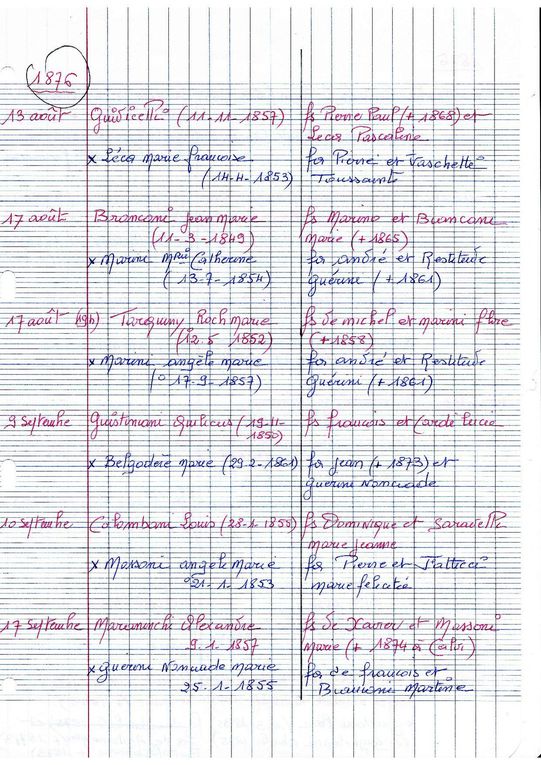 1876
13 août Giudicelli (11-11-1857) fs Pierre Paul (+ 1868) et
Leca Pascaline
x Léca marie francoise fa Pierre et Vaschetto
(14-4-1853) Toussaint
17 août Branconi Jean Marie fs Marino et Bianconi
(11-3-1849) Marie (+ 1865)
x Marini Catherine fa andré et Restitude
(13-7-1854) Guérini (+ 1861)
17 août (19h) Tarquiny Roch marie fs de michel et marini
(12.5 1852) (+ 1858)
x Marini angèle marie fa andré et Restitude
17-9-1857) Guérini (+ 1861)
9 Septembre Giustiniani Quilicus (19-11- fs francois et Cardi Lucie
1850)
x Belgodere Marie (29-2-1861) fa Jean (+ 1873) et
Guerini Nonciade
10 Septembre Colombani Louis (28-1-1855) fs Dominique et Saravelli
marie Jeanne
x Massoni angele Marie fa Pierre et
21-1-1853 marie felicité
17 Septembre Marianinchi Alexandre fs de Xavier et Massoni
9.1.1857 Marie (+ 1874 à Calvi)
x Guerini Nonciade Marie fa de francois et
25-1-1855 Bianconi Martine